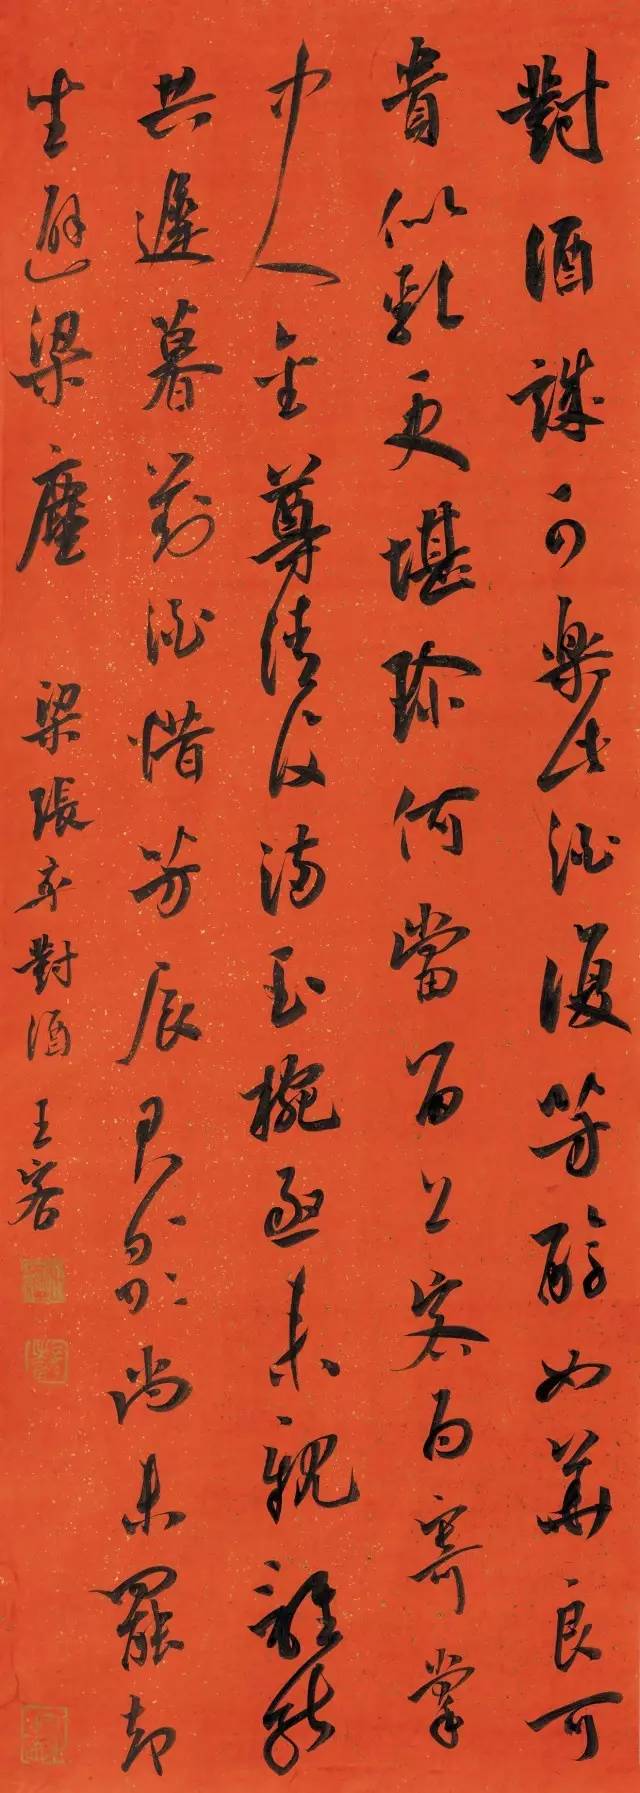 對酒誠可樂此酒復芳醇如華良可
貴似乳更堪珍何當留上客為寄掌
中人金尊清復滿玉椀亟來親誰能
共遲暮對酒惜芳辰君歌尚未罷却
坐避梁塵 梁張率對酒 王容